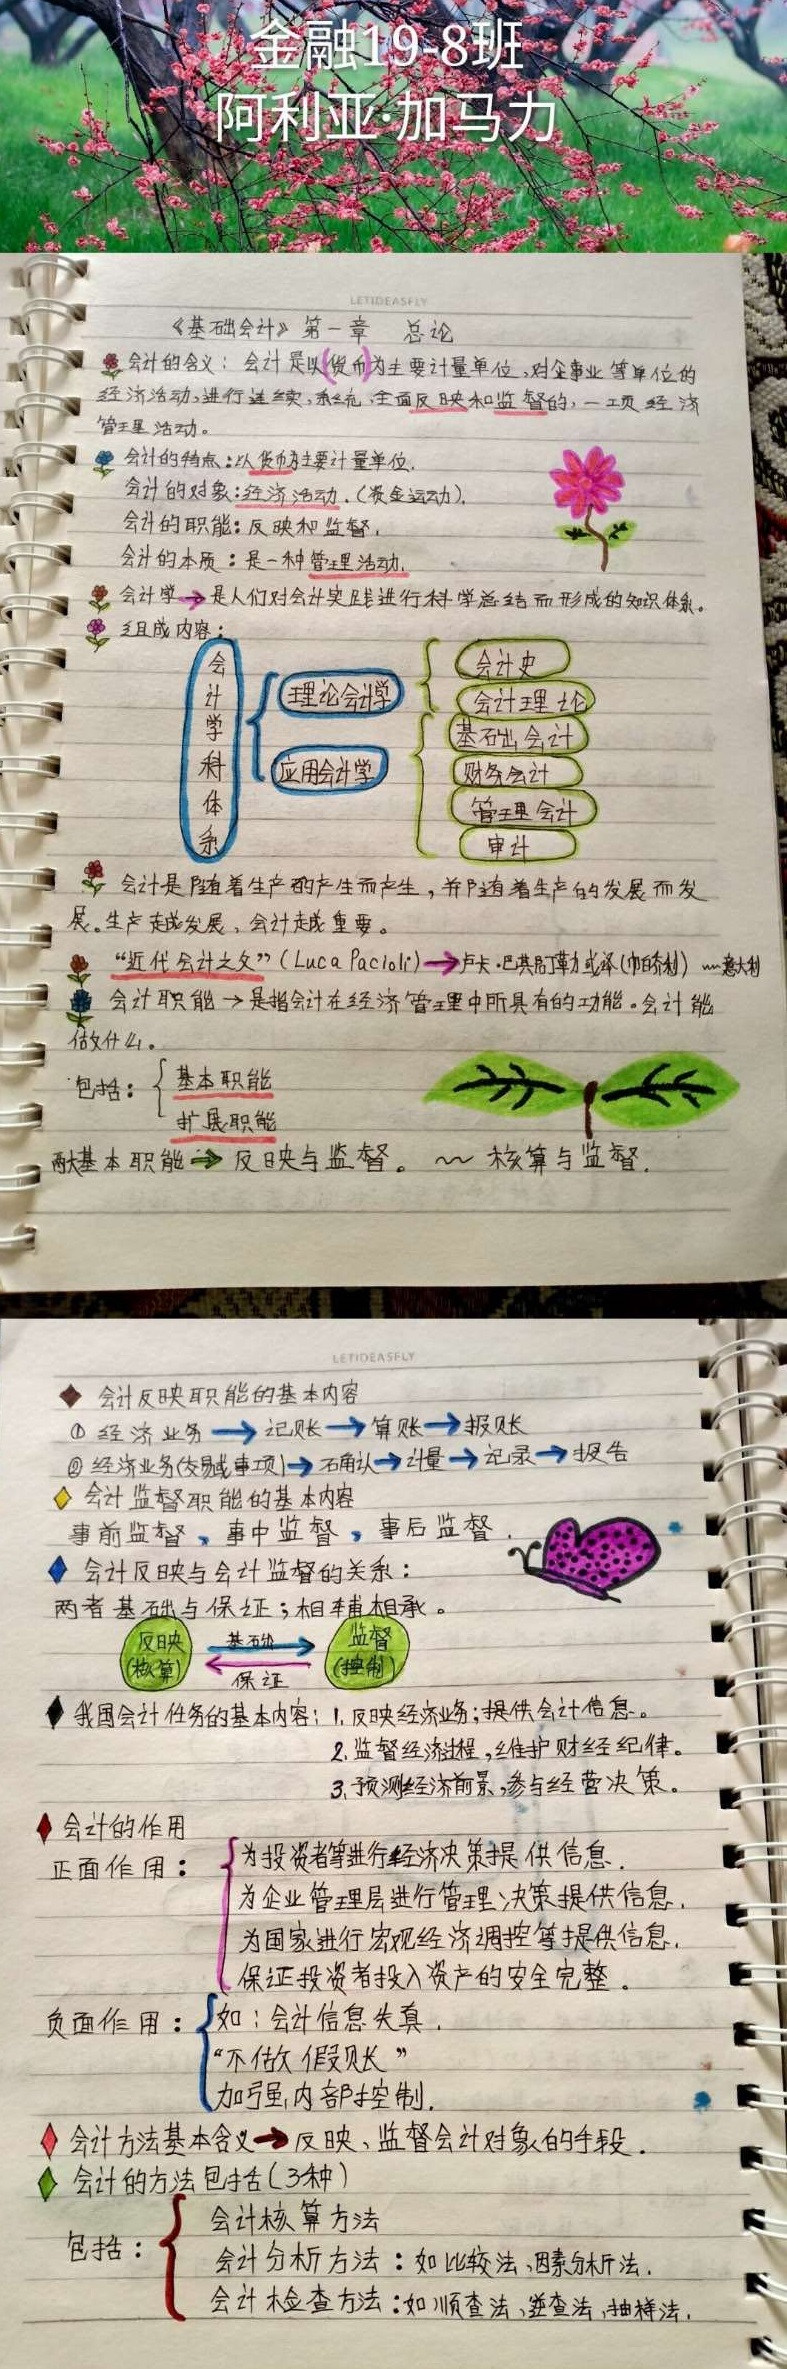 金融19-8班
阿利亚·加马力
LETIDEASFLY
《基础会计》第一章 总论
会计的含义：会计是以(货币)为主要计量单位,对企事业等单位的
经济活动,进行连续,系统,全面反映和监督的,一项经济
管理活动。
会计的特点:以货币为主要计量单位.
会计的对象:经济活动.(资金运动).
会计的职能:反映和监督.
会计的本质:是一种管理活动.
会计学→是人们对会计实践进行科学总结而形成的知识体系。
组成内容:
会计学科体系
理论会计学
应用会计学
会计史
会计理论
基础会计
财务会计
管理会计
审计
会计是随着生产的产生而产生,并随着生产的发展而发
展。生产越发展、会计越重要。
“近代会计之父”(Luca Pacioli)→卢卡·巴其阿勒或译(帕乔利) ~意大利
会计职能→是指会计在经济管理中所具有的功能。会计能
做什么。
包括:
基本职能
扩展职能
基本职能→反映与监督。~核算与监督.
LETIDEASFLY
会计反映职能的基本内容
① 经济业务→记账→算账→报账
② 经济业务(交易或事项)→确认→计量→记录→报告
会计监督职能的基本内容
事前监督,事中监督,事后监督.
会计反映与会计监督的关系:
两者基础与保证;相辅相承。
反映(核算)
基础
监督(控制)
保证
我国会计任务的基本内容:1.反映经济业务;提供会计信息。
2.监督经济过程,维护财经纪律。
3.预测经济前景,参与经营决策。
会计的作用
正面作用:
为投资者等进行经济决策提供信息.
为企业管理层进行管理决策提供信息.
为国家进行宏观经济调控等提供信息.
保证投资者投入资产的安全完整。
负面作用:
如:会计信息失真.
“不做假账”
加强内部控制.
会计方法基本含义→反映、监督会计对象的手段.
会计的方法包括(3种)
包括:
会计核算方法
会计分析方法:如比较法、因素分析法.
会计检查方法:如顺查法、逆查法、抽样法.